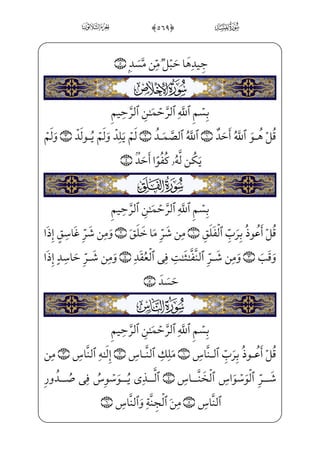 سُورَةُ الفَلَقِ ﴿٥٦٩﴾ الجُزْءُ الثَّلَاثُونَ
جِيدِهَا حَبْلٌ مِّن مَّسَدٍ ۝
سُورَةُ الإِخْلَاصِ
بِسْمِ ٱللَّهِ ٱلرَّحْمَـٰنِ ٱلرَّحِيمِ
قُلْ هُوَ ٱللَّهُ أَحَدٌ ۝ ٱللَّهُ ٱلصَّمَدُ ۝ لَمْ يَلِدْ وَلَمْ يُولَدْ ۝ وَلَمْ
يَكُن لَّهُۥ كُفُوًا أَحَدٌۢ ۝
سُورَةُ الفَلَقِ
بِسْمِ ٱللَّهِ ٱلرَّحْمَـٰنِ ٱلرَّحِيمِ
قُلْ أَعُوذُ بِرَبِّ ٱلْفَلَقِ ۝ مِن شَرِّ مَا خَلَقَ ۝ وَمِن شَرِّ غَاسِقٍ إِذَا
وَقَبَ ۝ وَمِن شَرِّ ٱلنَّفَّـٰثَـٰتِ فِى ٱلْعُقَدِ ۝ وَمِن شَرِّ حَاسِدٍ إِذَا
حَسَدَ ۝
سُورَةُ النَّاسِ
بِسْمِ ٱللَّهِ ٱلرَّحْمَـٰنِ ٱلرَّحِيمِ
قُلْ أَعُوذُ بِرَبِّ ٱلنَّاسِ ۝ مَلِكِ ٱلنَّاسِ ۝ إِلَـٰهِ ٱلنَّاسِ ۝ مِن
شَرِّ ٱلْوَسْوَاسِ ٱلْخَنَّاسِ ۝ ٱلَّذِى يُوَسْوِسُ فِى صُدُورِ
ٱلنَّاسِ ۝ مِنَ ٱلْجِنَّةِ وَٱلنَّاسِ ۝